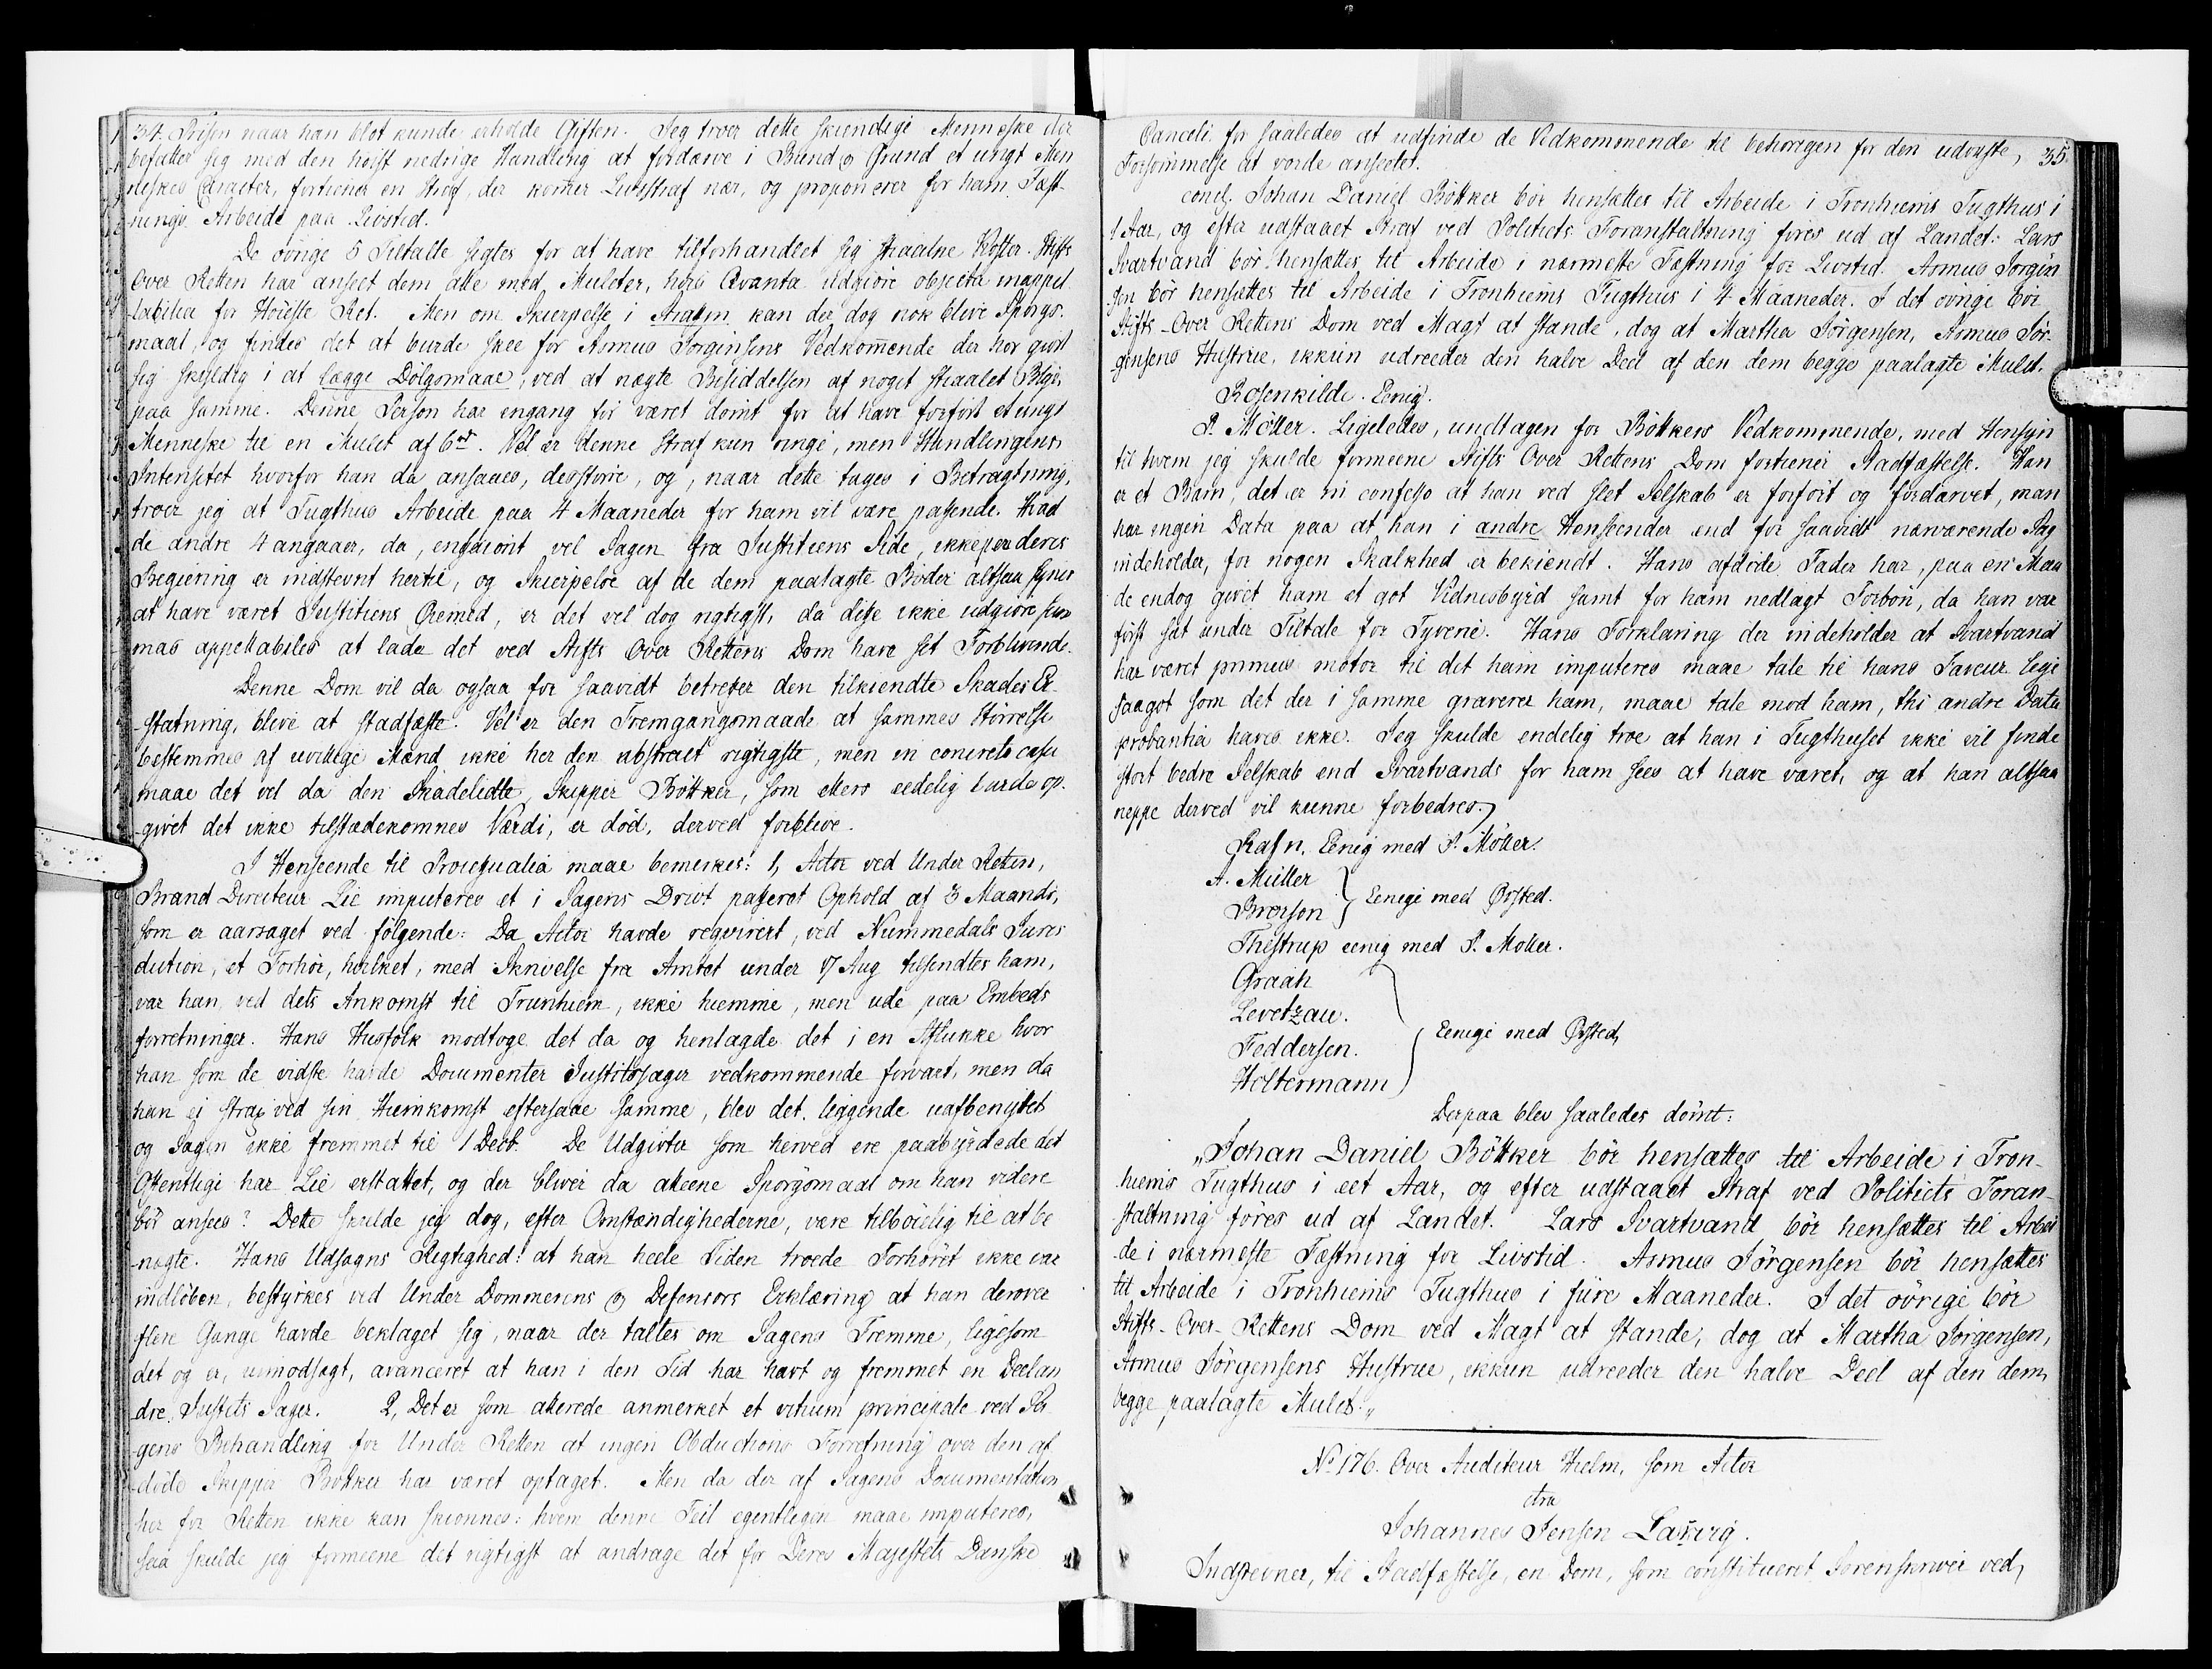 34. Prisen naar han blot kunde erholde Giften. Jeg troer dette skiendige Menneske der
befatter sig med den høist nedrige Handling at fordærve i Bund og Grund et ungt Men
neskes Caracter, fortiener en Straf, der kommer Livsstraf nær, og proponerer for ham Fæst-
nings Arbeide paa Livstid.
De øvrige 5 Tiltalte sigtes for at have tilforhandlet sig stiaalne Koster. Stifts
Over Retten har anseet dem alle med Mulcter, hvis Qvanta udgiøre objecta inappel
labilia for Høieste Ret. Men om Skierpelse i Straffen kan der dog nok blive Spørgs-
maal, og findes det at burde skee for Asmus Jørgensens Vedkom̅ende der har giort
sig skyldig i at lægge Dølgsmaal, ved at nægte Besiddelsen af noget stiaalet Blye,
paa samme. Denne Person har engang før været dømt for at have forført et ungt
Menneske til en Mulct af 6 rd. Vel er denne Straf kun ringe, men Handlingens
Intensitet hvorfor han da ansaaes, desstørre, og, naar dette tages i Betragtning,
troer jeg at Tugthus Arbeide paa 4 Maaneder for ham vil være passende. Hvad
de andre 4 angaaer, da, engang vel Sagen fra Justitiens Side, ikke paa deres
Begiering er indstevnt hertil, og Skierpelse af de dem paalagte Bøder altsaa synes
at have været Justitiens Øiemed, er det vel dog rigtigst, da disse ikke udgiøre sum
mas appellabiles at lade det ved Stifts Over Rettens Dom have sit Forblivende.
Denne Dom vil da ogsaa for saavidt betreffer den tilkiendte Skades Er-
statning, blive at stadfæste. Vel er den Fremgangsmaade at sammes Størrelse
bestemmes af uvillige Mænd ikke her den abstract rigtigste, men in concreto casu
maae det vel da den Skadelidte, Skipper Bøttker, som ellers eedelig burde op-
givet det ikke tilstædekomnes Værdi, er død, derved forblive.
I Henseende til Processualia maae bemerkes: 1, Actor ved Under Retten,
Brand Directeur Lie imputeres et i Sagens Drivt passeret Ophold af 3 Maaneder,
som er aarsaget ved følgende: Da Actor havde reqvireret, ved Nummedals Juris
diction, et Forhør, hvilket, med Skrivelse fra Amtet under 17 Aug tilsendtes ham,
var han, ved dets Ankomst til Trunhiem, ikke hiemme, men ude paa Embeds
forretninger. Hans Husfolk modtoge det da og henlagde det i en Aflukke hvor
han som de vidste havde Documenter Justitssager vedkommende forvart, men da
han ei strax ved sin Hiemkomst eftersaae samme, blev det liggende uafbenyttet
og Sagen ikke fremmet til 1 Decb. De Udgivter som herved ere paabyrdede det
Offentlige har Lie erstattet, og der bliver da aleene Spørgsmaal om han videre
bør ansees? Dette skulde jeg dog, efter Omstændighederne, være tilbøielig til at be
nægte. Hans Udsagns Rigtighed: at han heele Tiden troede Forhøret ikke var
indløben, bestyrkes ved Under Dommerens og Defensors Erklæring at han derover
flere Gange havde beklaget sig, naar der taltes om Sagens Fremme, ligesom
det og er, uimodsagt, avanceret at han i den Tid har havt og fremmet en Deel an
dre Justits Sager. 2, Det er som allerede anmerket et vitium principale ved Sa
gens Behandling for Under Retten at ingen Obductions Forretning over den af
døde Skipper Bøttker har været optaget. Men da der af Sagens Documentation
her for Retten ikke kan skiønnes: hvem denne Feil egentligen maae imputeres,
saa skulde jeg formeene det rigtigst at andrage det for Deres Majestets Danske
Cancelie for saaledes at udfinde de Vedkommende til behørigen for den udviste, 35.
Forsømmelse at vorde anseete.
concl. Johan Daniel Bøttker bør hensættes til Arbeide i Tronhiems Tugthus i
1 Aar, og efter udstaaet Straf ved Politiets Foranstaltning føres ud af Landet: Lars
Svartvand bør hensættes til Arbeide i nærmeste Fæstning for Livstid. Asmus Jørgen
sen bør hensættes til Arbeide i Tronhiems Tugthus i 4 Maaneder. I det øvrige bør
Stifts-Over Rettens Dom ved Magt at stande, dog at Martha Jørgensen, Asmus Jør-
gensens Hustrue, ikkun udreeder den halve Deel af den dem begge paalagte Mulct.
Rosenkilde. Eenig.
P. Møller. Ligeledes, undtagen for Bøttkers Vedkommende, med Hensyn
til hvem jeg skulde formeene Stifts Over Rettens Dom fortiener Stadfæstelse. Han
er et Barn, det er in confesso at han ved slet Selskab er forført og fordærvet, man
har ingen Data paa at han i andre Henseender end for saavidt nærværende Sag
indeholder, for nogen Skalkhed er bekiendt. Hans afdøde Fader har, paa en Maa
de endog givet ham et got Vidnesbyrd samt for ham nedlagt Forbøn, da han var
først sat under Tiltale for Tyverie. Hans Forklaring der indeholder at Svartvand
har været primus motor til det ham imputeres maae tale til hans Faveur lige
saagot som det der i samme graverer ham, maae tale mod ham, thi andre Data
probantia haves ikke. Jeg skulde endelig troe at han i Tugthuset ikke vil finde
stort bedre Selskab end Svartvands for ham sees at have været, og at han altsaa
neppe derved vil kunne forbedres.
Rafn. Eenig med P. Møller.
A. Müller
Brorson } Eenige med Ørsted.
Thestrup eenig med P. Møller.
Graah
Levetzau.
Feddersen. } Eenige med Ørsted,
Holtermann
Derpaa blev saaledes dømt:
„Johan Daniel Bøttker bør hensættes til Arbeide i Tron-
hiems Tugthus i eet Aar, og efter udstaaet Straf ved Politiets Foran-
staltning føres ud af Landet. Lars Svartvand bør hensættes til Arbei
de i nærmeste Fæstning for Livstid. Asmus Jørgensen bør hensættes
til Arbeide i Tronhiems Tugthus i fiire Maaneder. I det øvrige bør
Stifts-Over-Rettens Dom ved Magt at stande, dog at Martha Jørgensen,
Asmus Jørgensens Hustrue, ikkun udreeder den halve Deel af den dem
begge paalagte Mulct.„
No 176. Over Auditeur Hielm, som Actor
ctra
Johannes Jensen Lauvrig.
Indstevner, til Stadfæstelse, en Dom, som constitueret Sorenskriver ved,